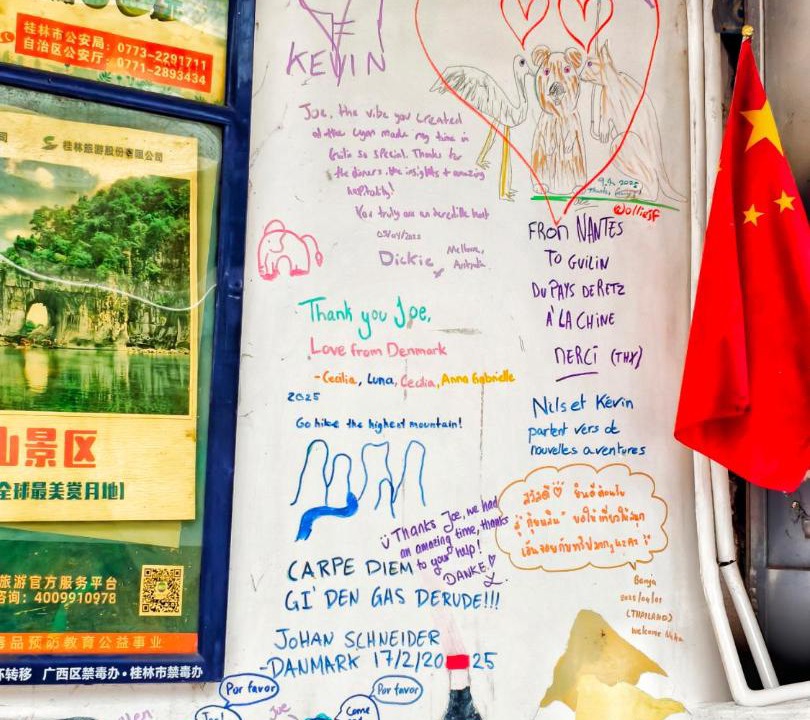 桂林市公安局: 0773-2291711
自治区公安厅: 0771-2893434
桂林旅游股份有限公司
山景区
全球最美赏月地!
旅游官方服务平台
咨询: 4009910978
毒品预防教育公益事业
环转移 广西区禁毒办·桂林市禁毒办
KEVIN
Joe, the vibe you created
at the Wada made my time in
Guilin so special. Thanks for
the dinners, the insights & amazing
hospitality!
You truly are an incredible host
Dickie
Melbourne,
Australia
Thank you Joe,
Love from Denmark
-Cecilia, Luna, Cecilia, Anna Gabrielle
2025
Go hike the highest mountain!
Thanks Joe, we had
an amazing time, thanks
to your help!
DANKE
CARPE DIEM
GI' DEN GAS DERUDE!!!
JOHAN SCHNEIDER
-DANMARK 17/2/20 25
Por favor
Por favor
Joe!
Joe
Come
9.4. 2025
FROM NANTES
TO GUILIN
DU PAYS DE RETZ
À LA CHINE
MERCI (THX)
Nils et Kévin
partent vers de
nouvelles aventures
สวัสดี ยินดีต้อนรับ
สู่ "กุ้ยหลิน" ขอให้เที่ยวให้สนุก
Benja
(THAILAND)
welcome